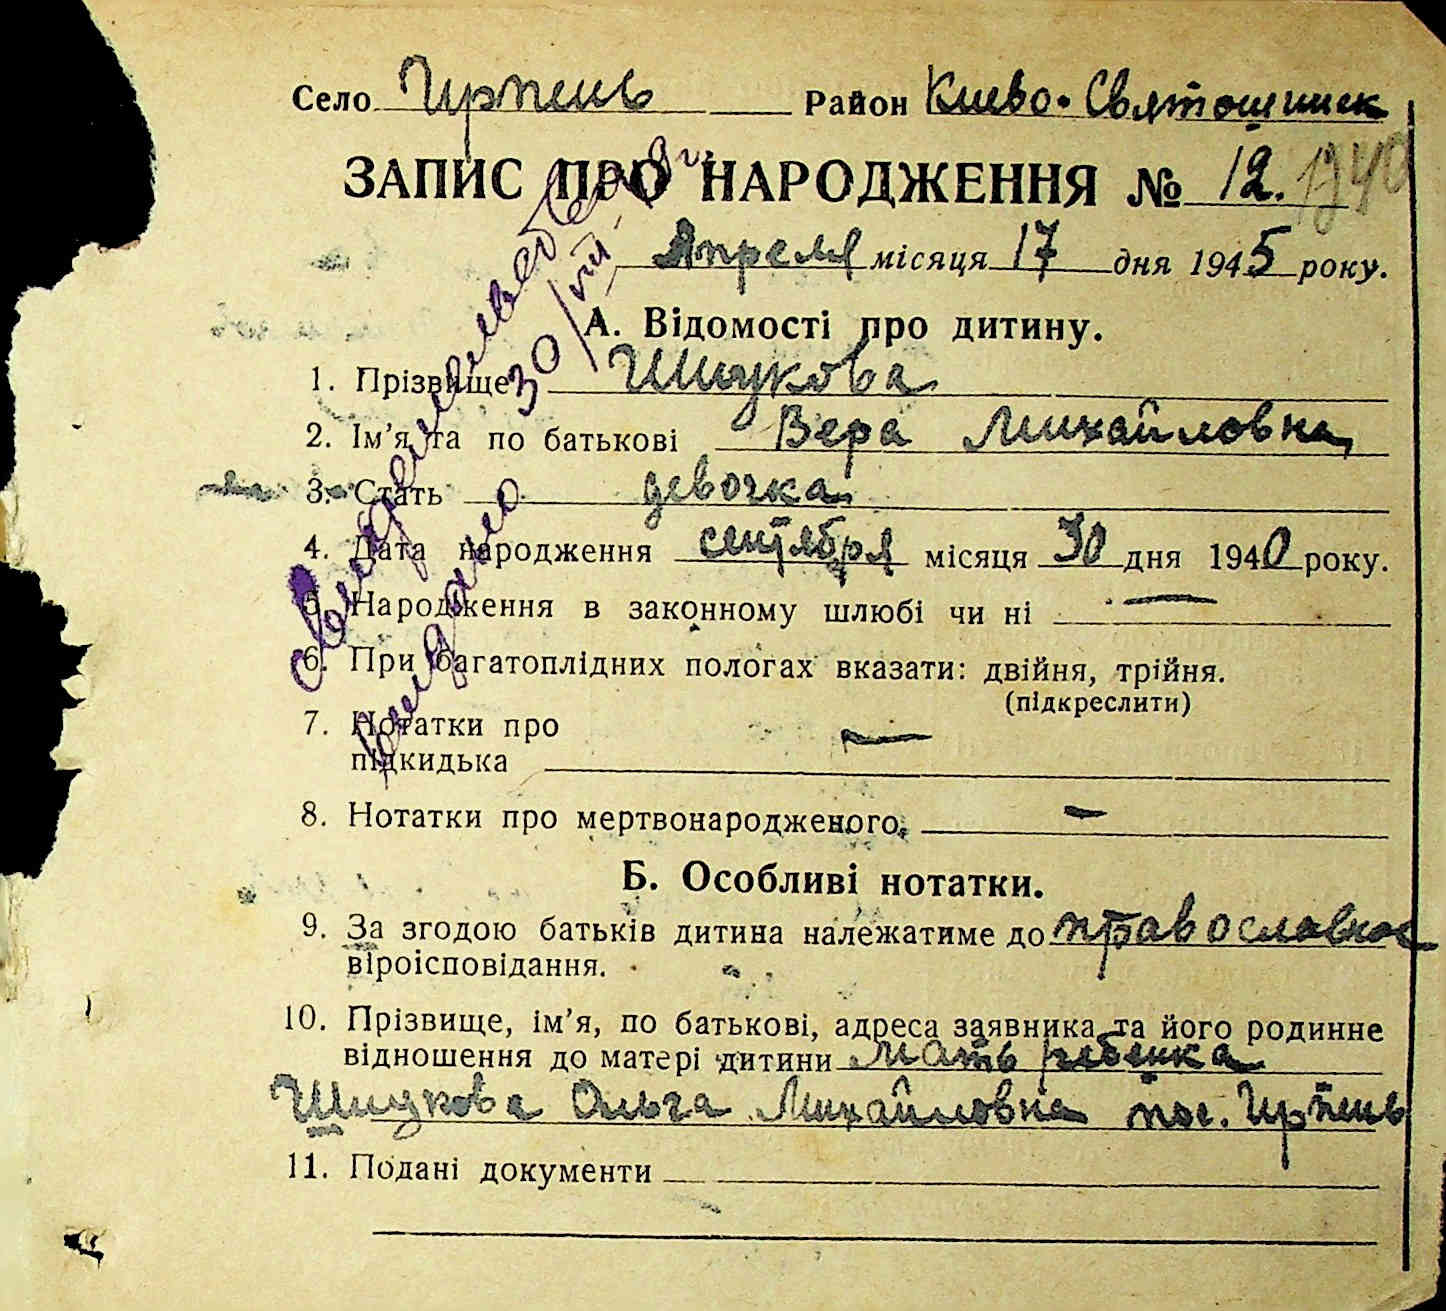 Село Ирпень Район Киево-Святошинск
ЗАПИС ПРО НАРОДЖЕННЯ № 12. 1940
Апреля місяця 17 дня 1945 року.
А. Відомості про дитину.
1. Прізвище Шицкова
2. Ім'я та по батькові Вера Михайловна
3. Стать девочка
4. Дата народження сентября 30 дня 1940 року.
5. Народження в законному шлюбі чи ні —
6. При багатоплідних пологах вказати: двійня, трійня.
(підкреслити)
7. Нотатки про
підкидька —
8. Нотатки про мертвонародженого. —
Б. Особливі нотатки.
9. За згодою батьків дитина належатиме до православное
віроісповідання.
10. Прізвище, ім'я, по батькові, адреса заявника та його родинне
відношення до матері дитини мать ребенка
Шицкова Ольга Михайловна пос. Ирпень
11. Подані документи
выдано 30/